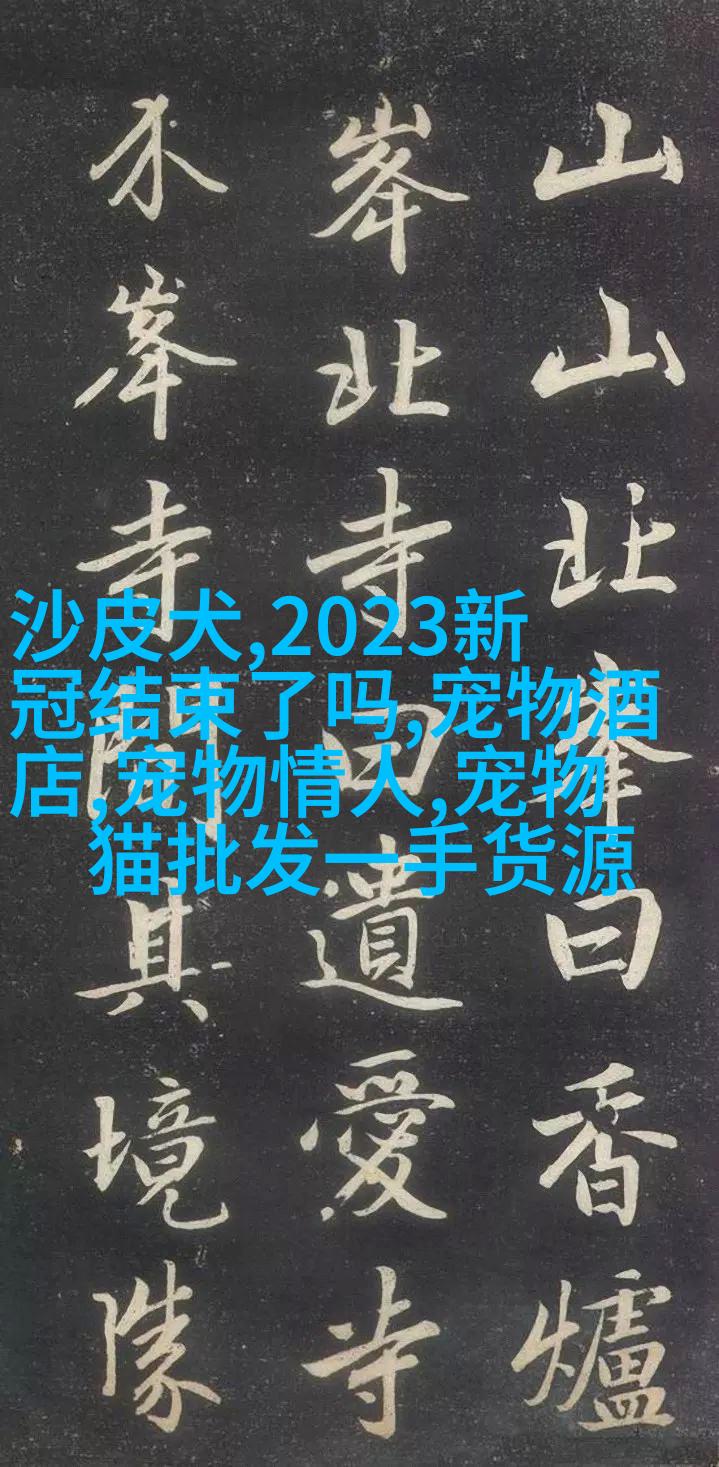 山山北峯曰香爐
峯北寺曰遺愛寺
介峯寺間其境勝
沙皮犬,2023新
冠结束了吗,宠物酒
店,宠物情人,宠物
猫批发一手货源